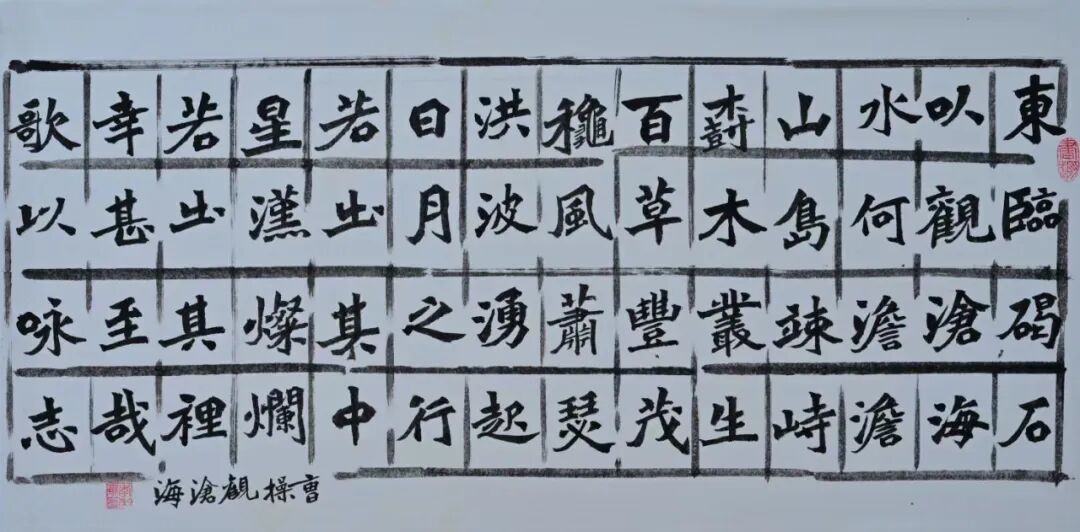 東臨碣石
以觀滄海
水何澹澹
山島竦峙
樹木叢生
百草豐茂
龝風蕭瑟
洪波湧起
日月之行
若出其中
星漢燦爛
若出其裡
幸甚至哉
歌以咏志
曹操觀滄海